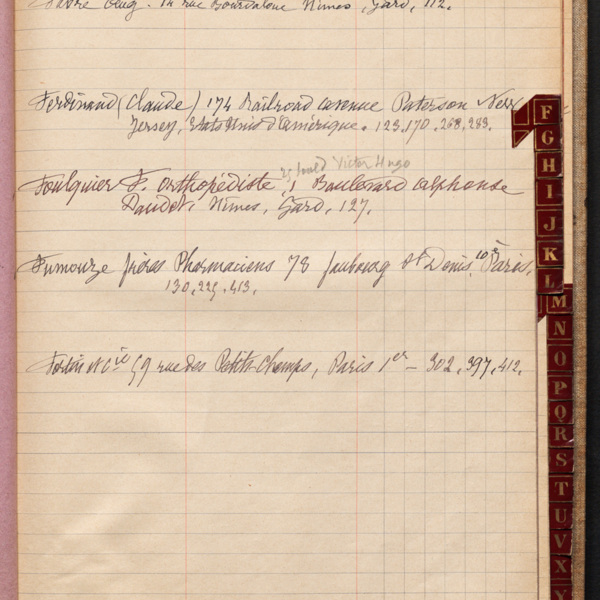 Favre Aug. 14 rue Bourdaloue Nîmes, Gard, 112.
Ferdinand (Claude) 174 Railroad avenue Paterson New
Jersey, Etats Unis d'Amérique. 123.170.268.283.
Bould Victor Hugo
Foulquier F. Orthopédiste, 1 Boulevard Alphonse
Daudet, Nîmes, Gard, 127.
Fumouze frères Pharmaciens 78 faubourg St Denis, 10e Paris.
130.225.413.
Fortin et Cie 59 rue des Petits-Champs, Paris 1er - 302.397.412.
F
G
H
I
J
K
L
M
N
O
P
Q
R
S
T
U
V
X
Y